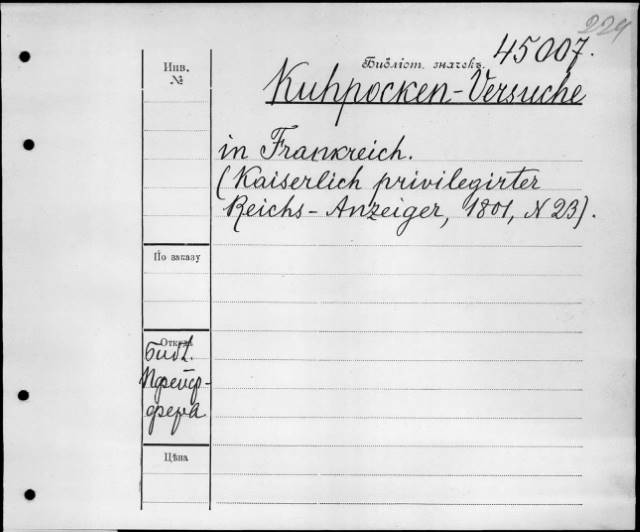 224
45007.
Инв.
№
Библіот. значекъ.
Kuhpocken-Versuche
in Frankreich.
(Kaiserlich privilegirter
Reichs-Anzeiger, 1801, N 23).
По заказу
Откуда
Библ.
Пфейф-
фера
Цѣна